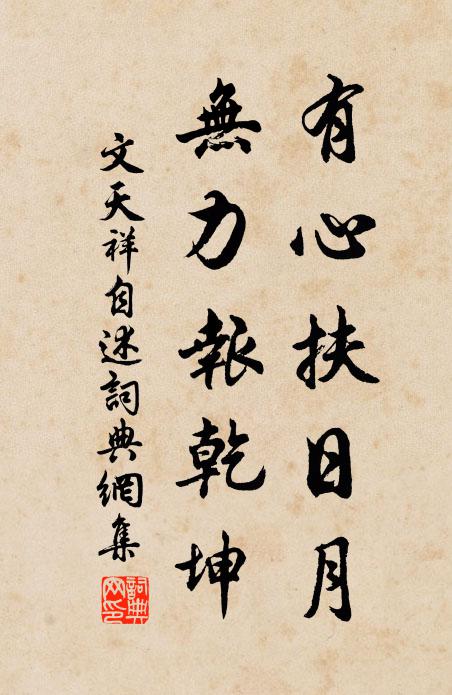 有心扶日月
無力報乾坤
文天祥自述詞典網集
詞典
网印